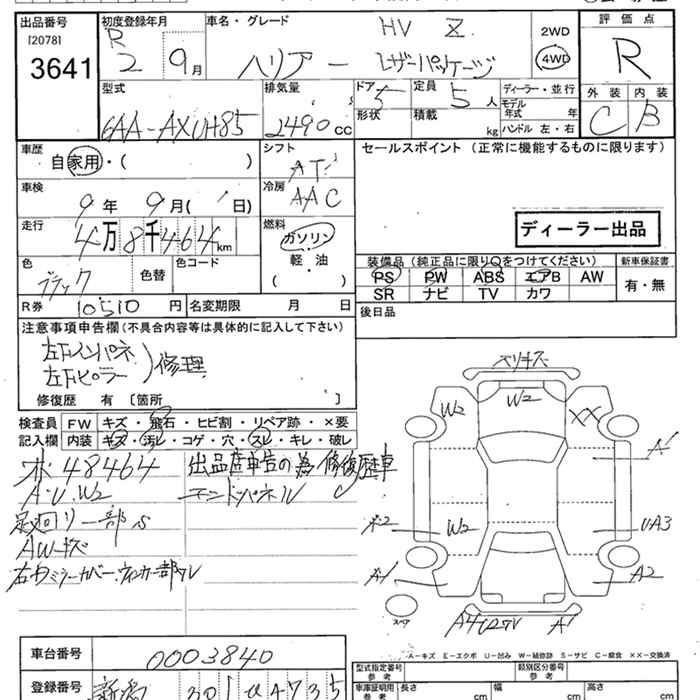 出品番号
[2078]
3641
初度登録年月
R2 9月
車名・グレード
HV Z
ハリアー レザーパッケージ
2WD
4WD
評価点
R
外装 内装
C B
型式
6AA-AXUH85
排気量
2490cc
ドア 5
形状
定員 5人
積載 kg
ディーラー・並行
モデル年式 年
ハンドル 左・右
車歴
自家用・( )
シフト
AT
冷房
AAC
セールスポイント(正常に機能するものに限ります)
車検
9年 9月( 日)
走行
4万8千464km
燃料
ガソリン
軽・油
( )
ディーラー出品
色
ブラック
色替
色コード
装備品(純正品に限り○をつけてください)
PS PW ABS エアB AW
SR ナビ TV カワ
新車保証書
有・無
R券 10510円
名変期限 月 日
後日品
注意事項申告欄(不具合内容等は具体的に記入して下さい)
左下インパネ
左下ピラー )修理
修復歴 有 〔箇所 〕
検査員記入欄
FW キズ・飛石・ヒビ割・リペア跡・×要
内装 キズ・汚レ・コゲ・穴・スレ・キレ・破レ
48464
出品店申告の為修復歴車
A.U.W2
エンドパネル
足廻り一部S
AWキズ
右ドアミラーカバー、ウィンカー部ワレ
キリキズ
W2
W2
XX
A1
W2
UA3
A1
A2
A1
スペア
A-キズ E-エクボ U-凹み W-補修跡 S-サビ C-腐食 ××-交換済
車台番号
0003840
登録番号
新潟 301
型式指定番号
参考
類別区分番号
参考
車庫証明用
参考
長さ cm
幅 cm
高さ cm